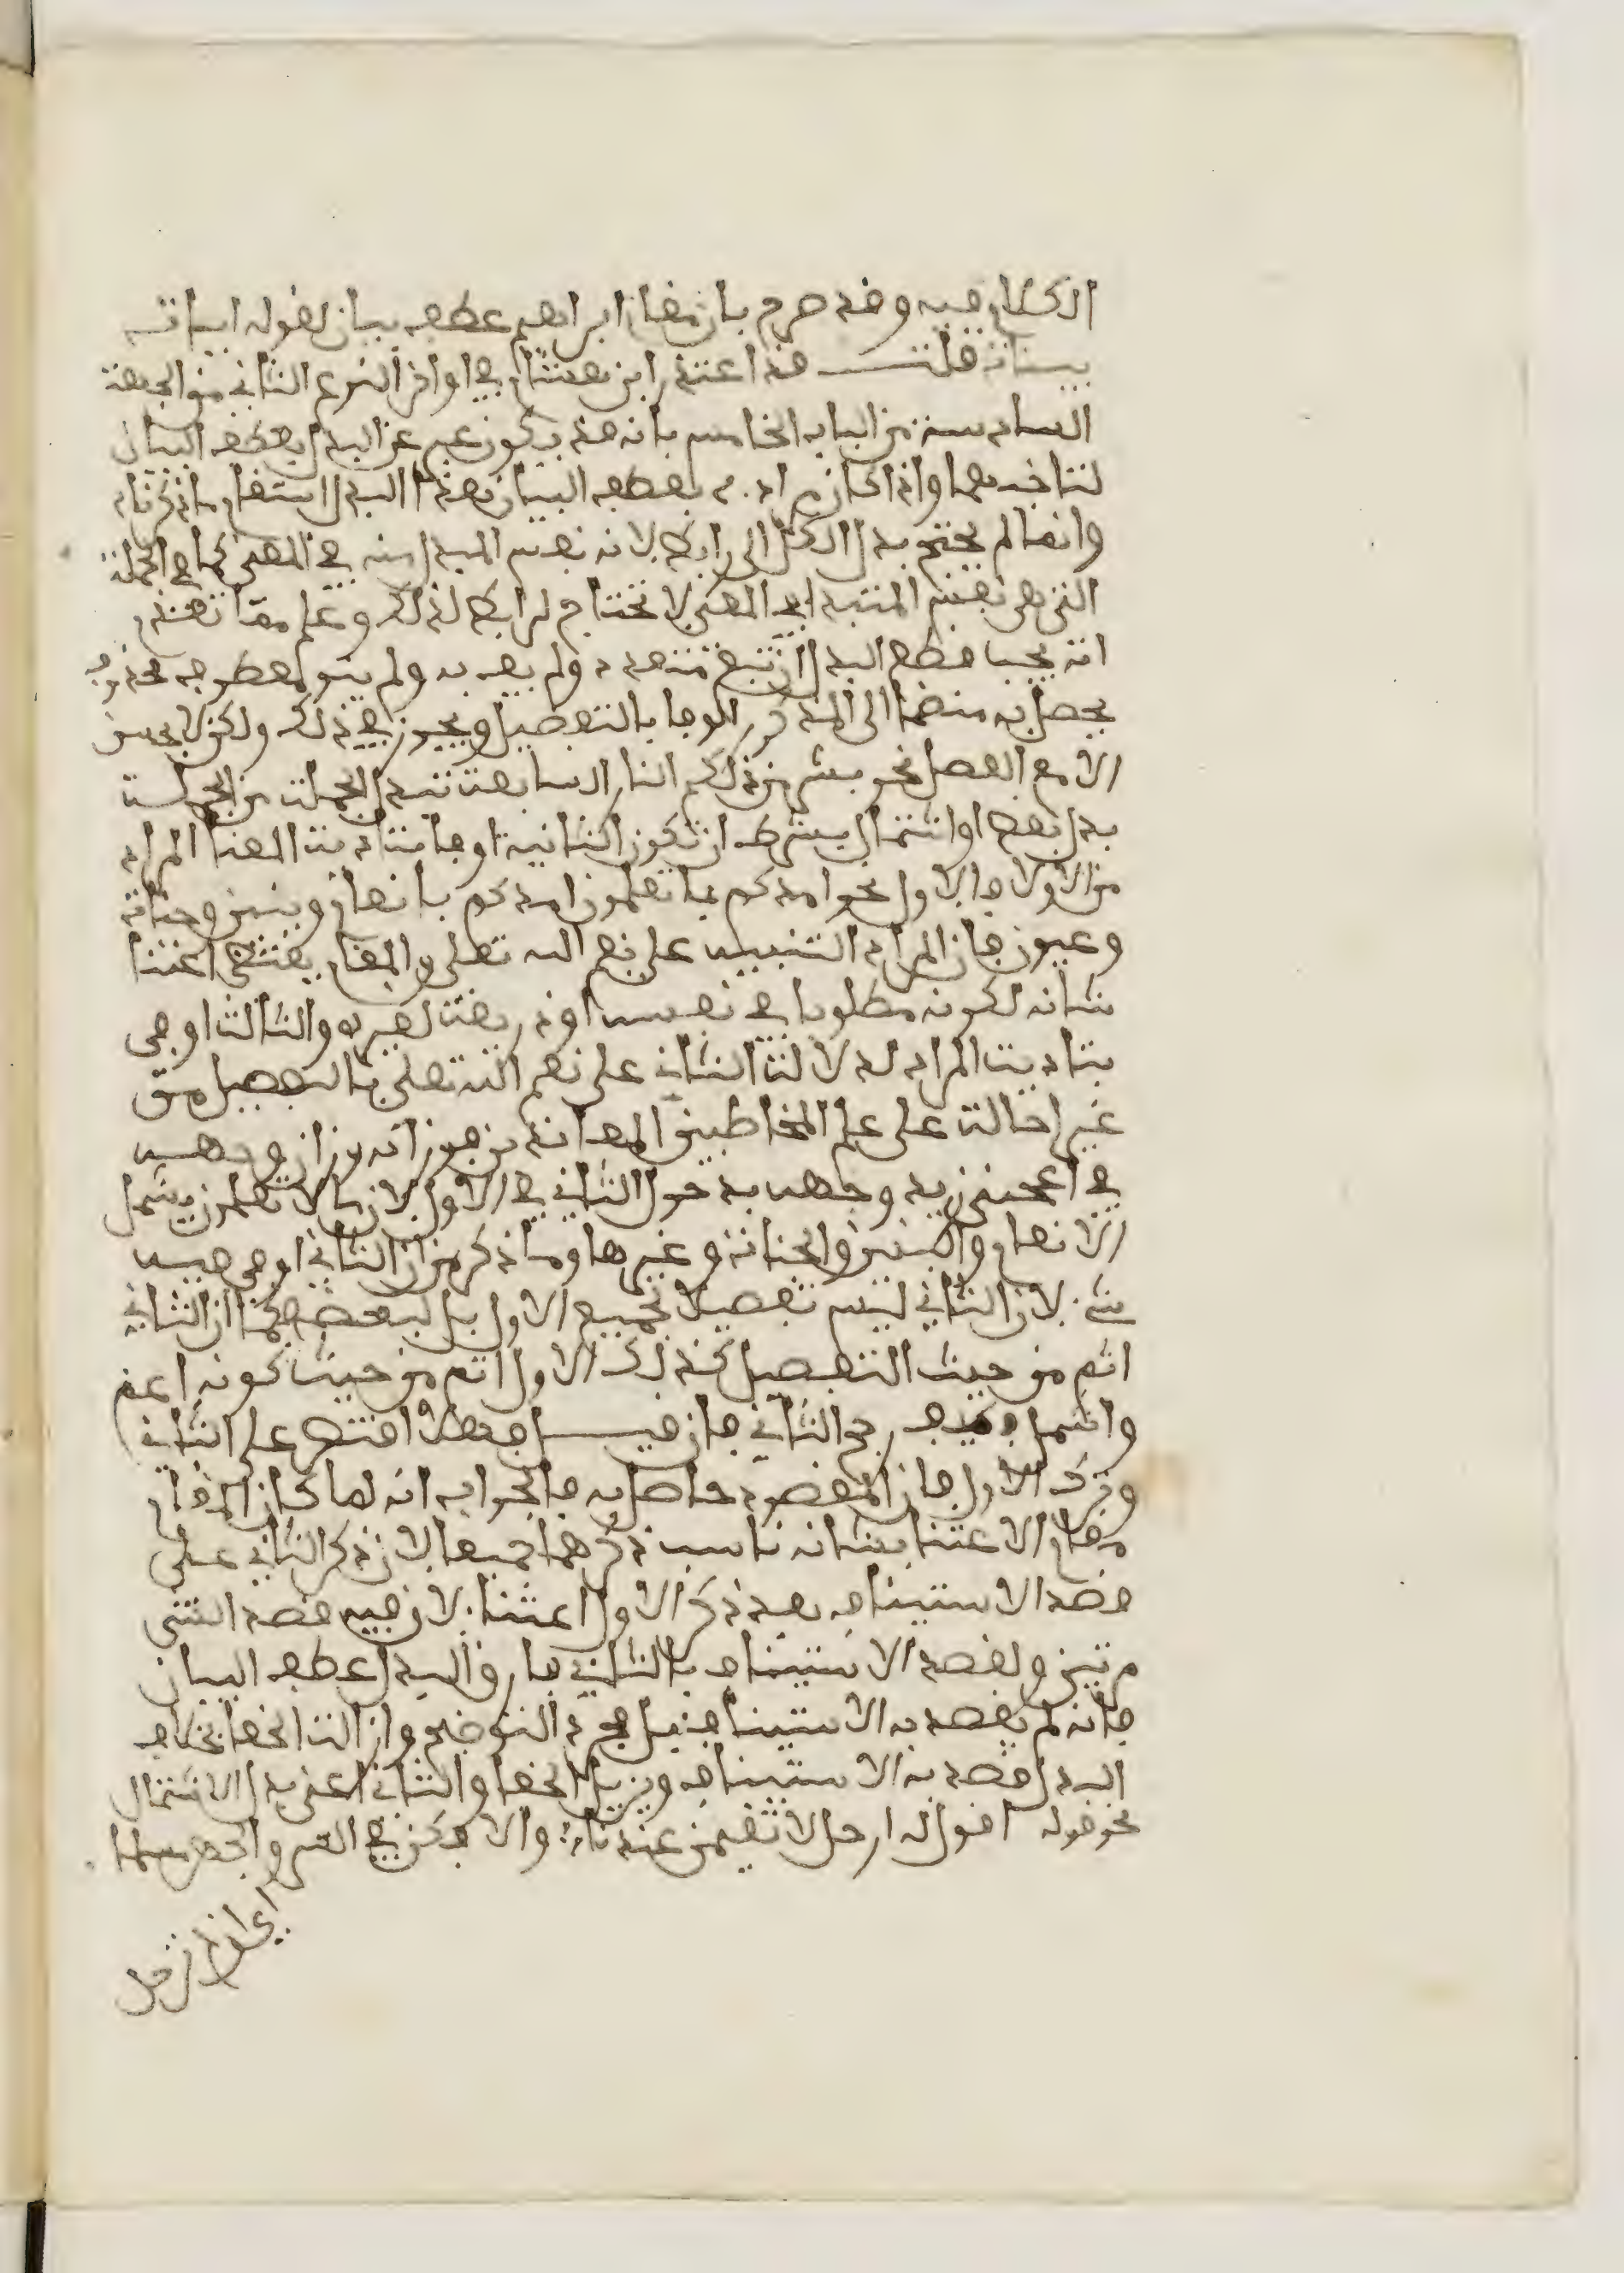 الكلام فيه وقد صرح بان مقام ابراهيم عطف بيان لقوله ايات
بينات قلت قد اعتذر ابن هشام في اواخر النوع الثاني من الجهة
السادسة من الباب الخامس بانه قد يكون عبر عن البدل بعطف البيان
لتاخيهما واذا كان مراده بعطف البيان هذا البدل استقام ما ذكرناه
وانما لم يحتج بدل الكل الى رابط لانه نفس المبدل منه في المعنى كما في الجملة
التي هي نفس المبتدا في المعنى لا تحتاج لرابط لذلك وعلم مما تقدم
انه يجب قطع البدل ان تبع متعدد ولم يف به ولم ينو معطوف محذوف
يحصل به منضما الى المذكور الوفا بالتفصيل ويجوز في ذلك ولكن لا يحسن
الا مع الفصل نحو بشر من ذلكم النار السابعة تبدل الجملة من الجملة
بدل بعض او اشتمال بشرط ان تكون الثانية اوفى بتادية المعنا المراد
من الاولا فالاول نحو امدكم بما تعلمون امدكم بانعام وبنين وجنات
وعيون فان المراد التنبيه على نعم الله تعلى والمقام يقتضي اعتنا
بشانه لكونه مطلوبا في نفسه او ذريعة لغيره والثالث اوفى
بتادية المراد لدلالة الثاني على نعم الله تعلى بالتفصيل من
غير احالة على علم المخاطبين المعاندين فوزانه وزان وجهه
في اعجبني زيد وجهه لدخول الثاني في الاول لان ما لا تعلمون يشمل
الانعام والبنين والجنات وغيرها وما ذكر من ان الثاني اوفى فيه
شيء لان الثاني ليس تفصيلا لجميع الاول بل لبعضه فكما ان الثاني
اتم من حيث التفصيل كذلك الاول اتم من حيث كونه اعم
واشمل فكيف رجح الثاني فان قيل فهلا اقتصر على الثاني
وترك الاول فان المقصود حاصل به فالجواب انه لما كان المقام
مقام الاعتنا بشانه ناسب ذكرهما جميعا لان ذكر الثاني على
قصد الاستيناف بعد ذكر الاول اعتنا لان فيه قصد الشي
مرتين ولقصد الاستيناف بالثاني فارق البدل عطف البيان
فانه لم يقصد به الاستيناف بل مجرد التوضيح وازالة الخفا بخلاف
البدل قصد به الاستيناف ويزيل الخفا والثاني اعني بدل الاشتمال
نحو قوله اقول له ارحل لا تقيمن عندنا والا فكن في السر والجهر مسلما
اي اقول